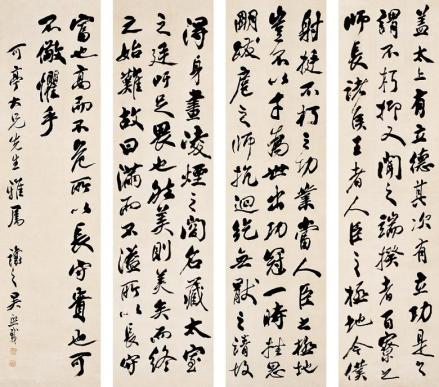 蓋太上有立德其次有立功是之
謂不朽抑又聞之端揆者百寮之
師長諸侯王者人臣之極地今僕
射挺不朽之功業當人臣之極地
豈不以才為世出功冠一時挫思
明跋扈之師抗迴紇無厭之請故
得身畫凌煙之閣名藏太室
之廷吁足畏也然美則美矣而終
之始難故曰滿而不溢所以長守
富也高而不危所以長守貴也可
不儆懼乎
可亭大兄先生雅屬 讓之吳熙載